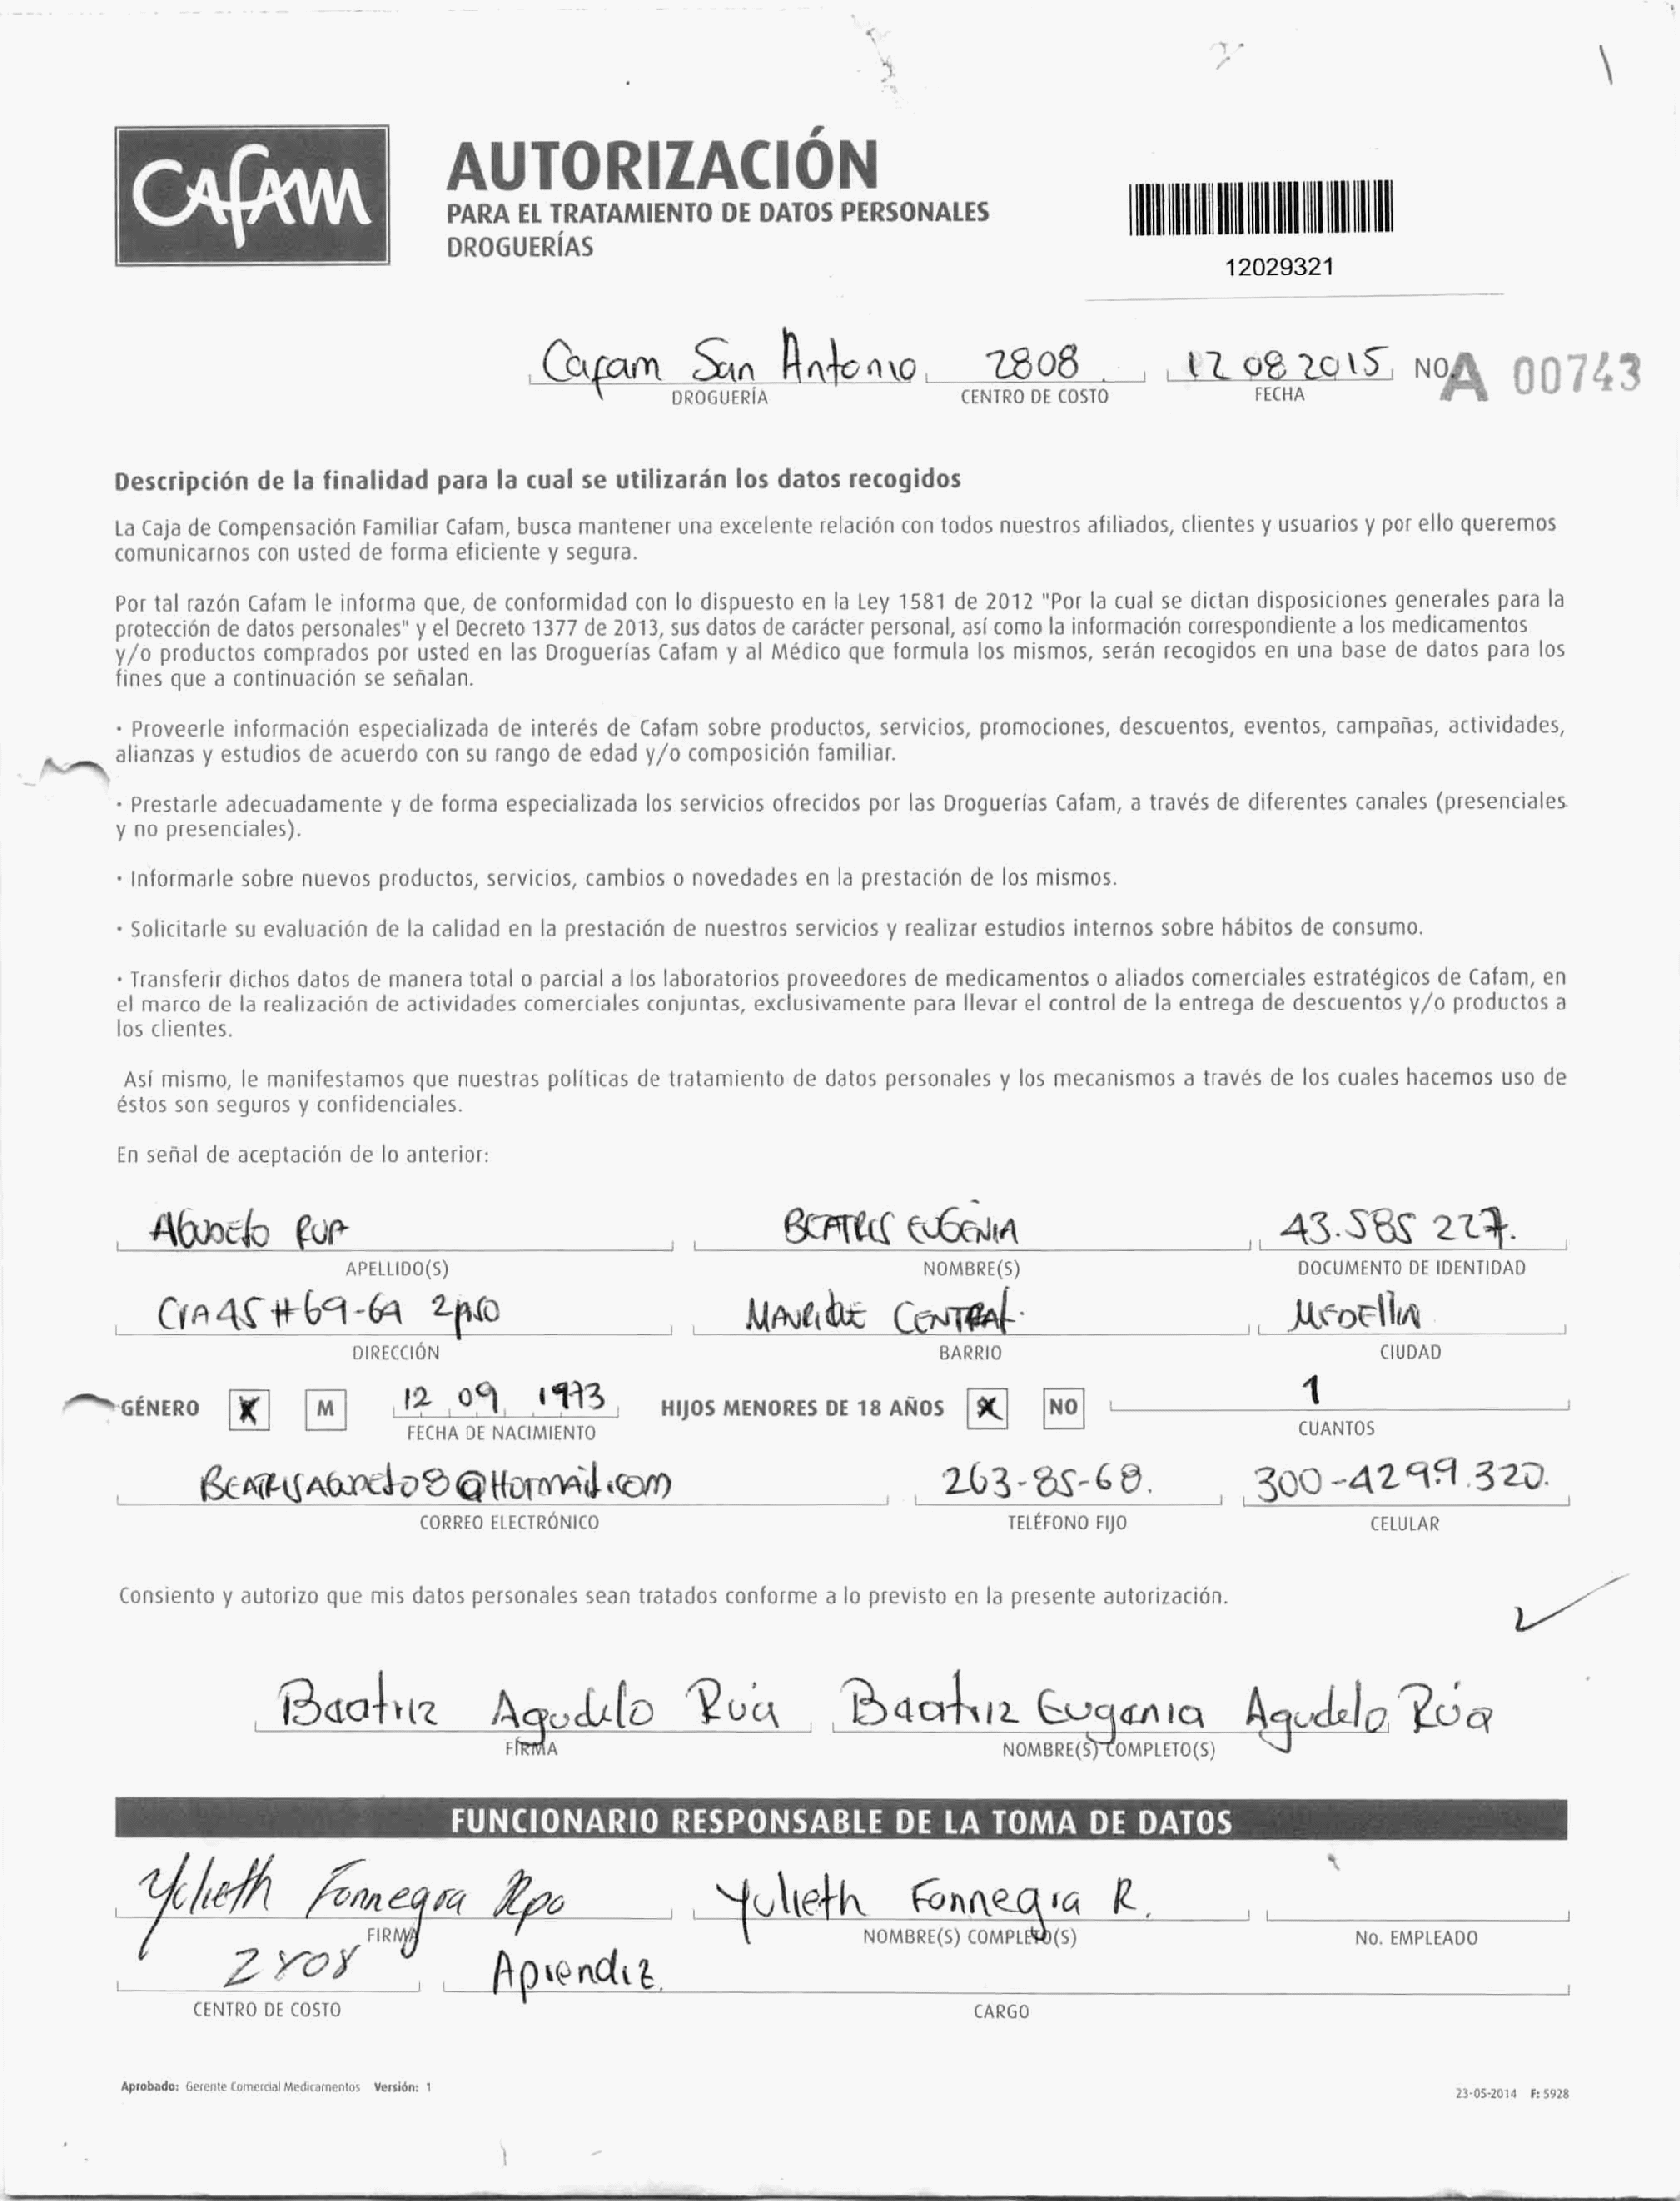 CAfAM
AUTORIZACIÓN
PARA EL TRATAMIENTO DE DATOS PERSONALES
DROGUERÍAS
12029321
Cafam San Antonio 2808 12 08 2015 NO. A 00743
DROGUERÍA CENTRO DE COSTO FECHA
Descripción de la finalidad para la cual se utilizarán los datos recogidos
La Caja de Compensación Familiar Cafam, busca mantener una excelente relación con todos nuestros afiliados, clientes y usuarios y por ello queremos
comunicarnos con usted de forma eficiente y segura.
Por tal razón Cafam le informa que, de conformidad con lo dispuesto en la Ley 1581 de 2012 "Por la cual se dictan disposiciones generales para la
protección de datos personales" y el Decreto 1377 de 2013, sus datos de carácter personal, así como la información correspondiente a los medicamentos
y/o productos comprados por usted en las Droguerías Cafam y al Médico que formula los mismos, serán recogidos en una base de datos para los
fines que a continuación se señalan.
· Proveerle información especializada de interés de Cafam sobre productos, servicios, promociones, descuentos, eventos, campañas, actividades,
alianzas y estudios de acuerdo con su rango de edad y/o composición familiar.
· Prestarle adecuadamente y de forma especializada los servicios ofrecidos por las Droguerías Cafam, a través de diferentes canales (presenciales
y no presenciales).
· Informarle sobre nuevos productos, servicios, cambios o novedades en la prestación de los mismos.
· Solicitarle su evaluación de la calidad en la prestación de nuestros servicios y realizar estudios internos sobre hábitos de consumo.
· Transferir dichos datos de manera total o parcial a los laboratorios proveedores de medicamentos o aliados comerciales estratégicos de Cafam, en
el marco de la realización de actividades comerciales conjuntas, exclusivamente para llevar el control de la entrega de descuentos y/o productos a
los clientes.
Así mismo, le manifestamos que nuestras políticas de tratamiento de datos personales y los mecanismos a través de los cuales hacemos uso de
éstos son seguros y confidenciales.
En señal de aceptación de lo anterior:
Agudelo Rua BEATRIS EUGENIA 43.585 227.
APELLIDO(S) NOMBRE(S) DOCUMENTO DE IDENTIDAD
CrA 45 #69-69 2 piso CENTRAL. MEDEllIN
DIRECCIÓN BARRIO CIUDAD
GÉNERO X M 12 09 1973 HIJOS MENORES DE 18 AÑOS X NO 1
FECHA DE NACIMIENTO CUANTOS
BEATRISAGudelo8@Hotmail.com 263-85-68. 300-4299.320.
CORREO ELECTRÓNICO TELÉFONO FIJO CELULAR
Consiento y autorizo que mis datos personales sean tratados conforme a lo previsto en la presente autorización.
Beatriz Agudelo Rúa Beatriz Eugenia Agudelo Rúa
FIRMA NOMBRE(S) COMPLETO(S)
FUNCIONARIO RESPONSABLE DE LA TOMA DE DATOS
Yulieth Fonnegra Rpo Yulieth Fonnegra R.
FIRMA NOMBRE(S) COMPLETO(S) No. EMPLEADO
2808 Aprendiz.
CENTRO DE COSTO CARGO
Aprobado: Gerente Comercial Medicamentos Versión: 1
23-05-2014 F: 5928